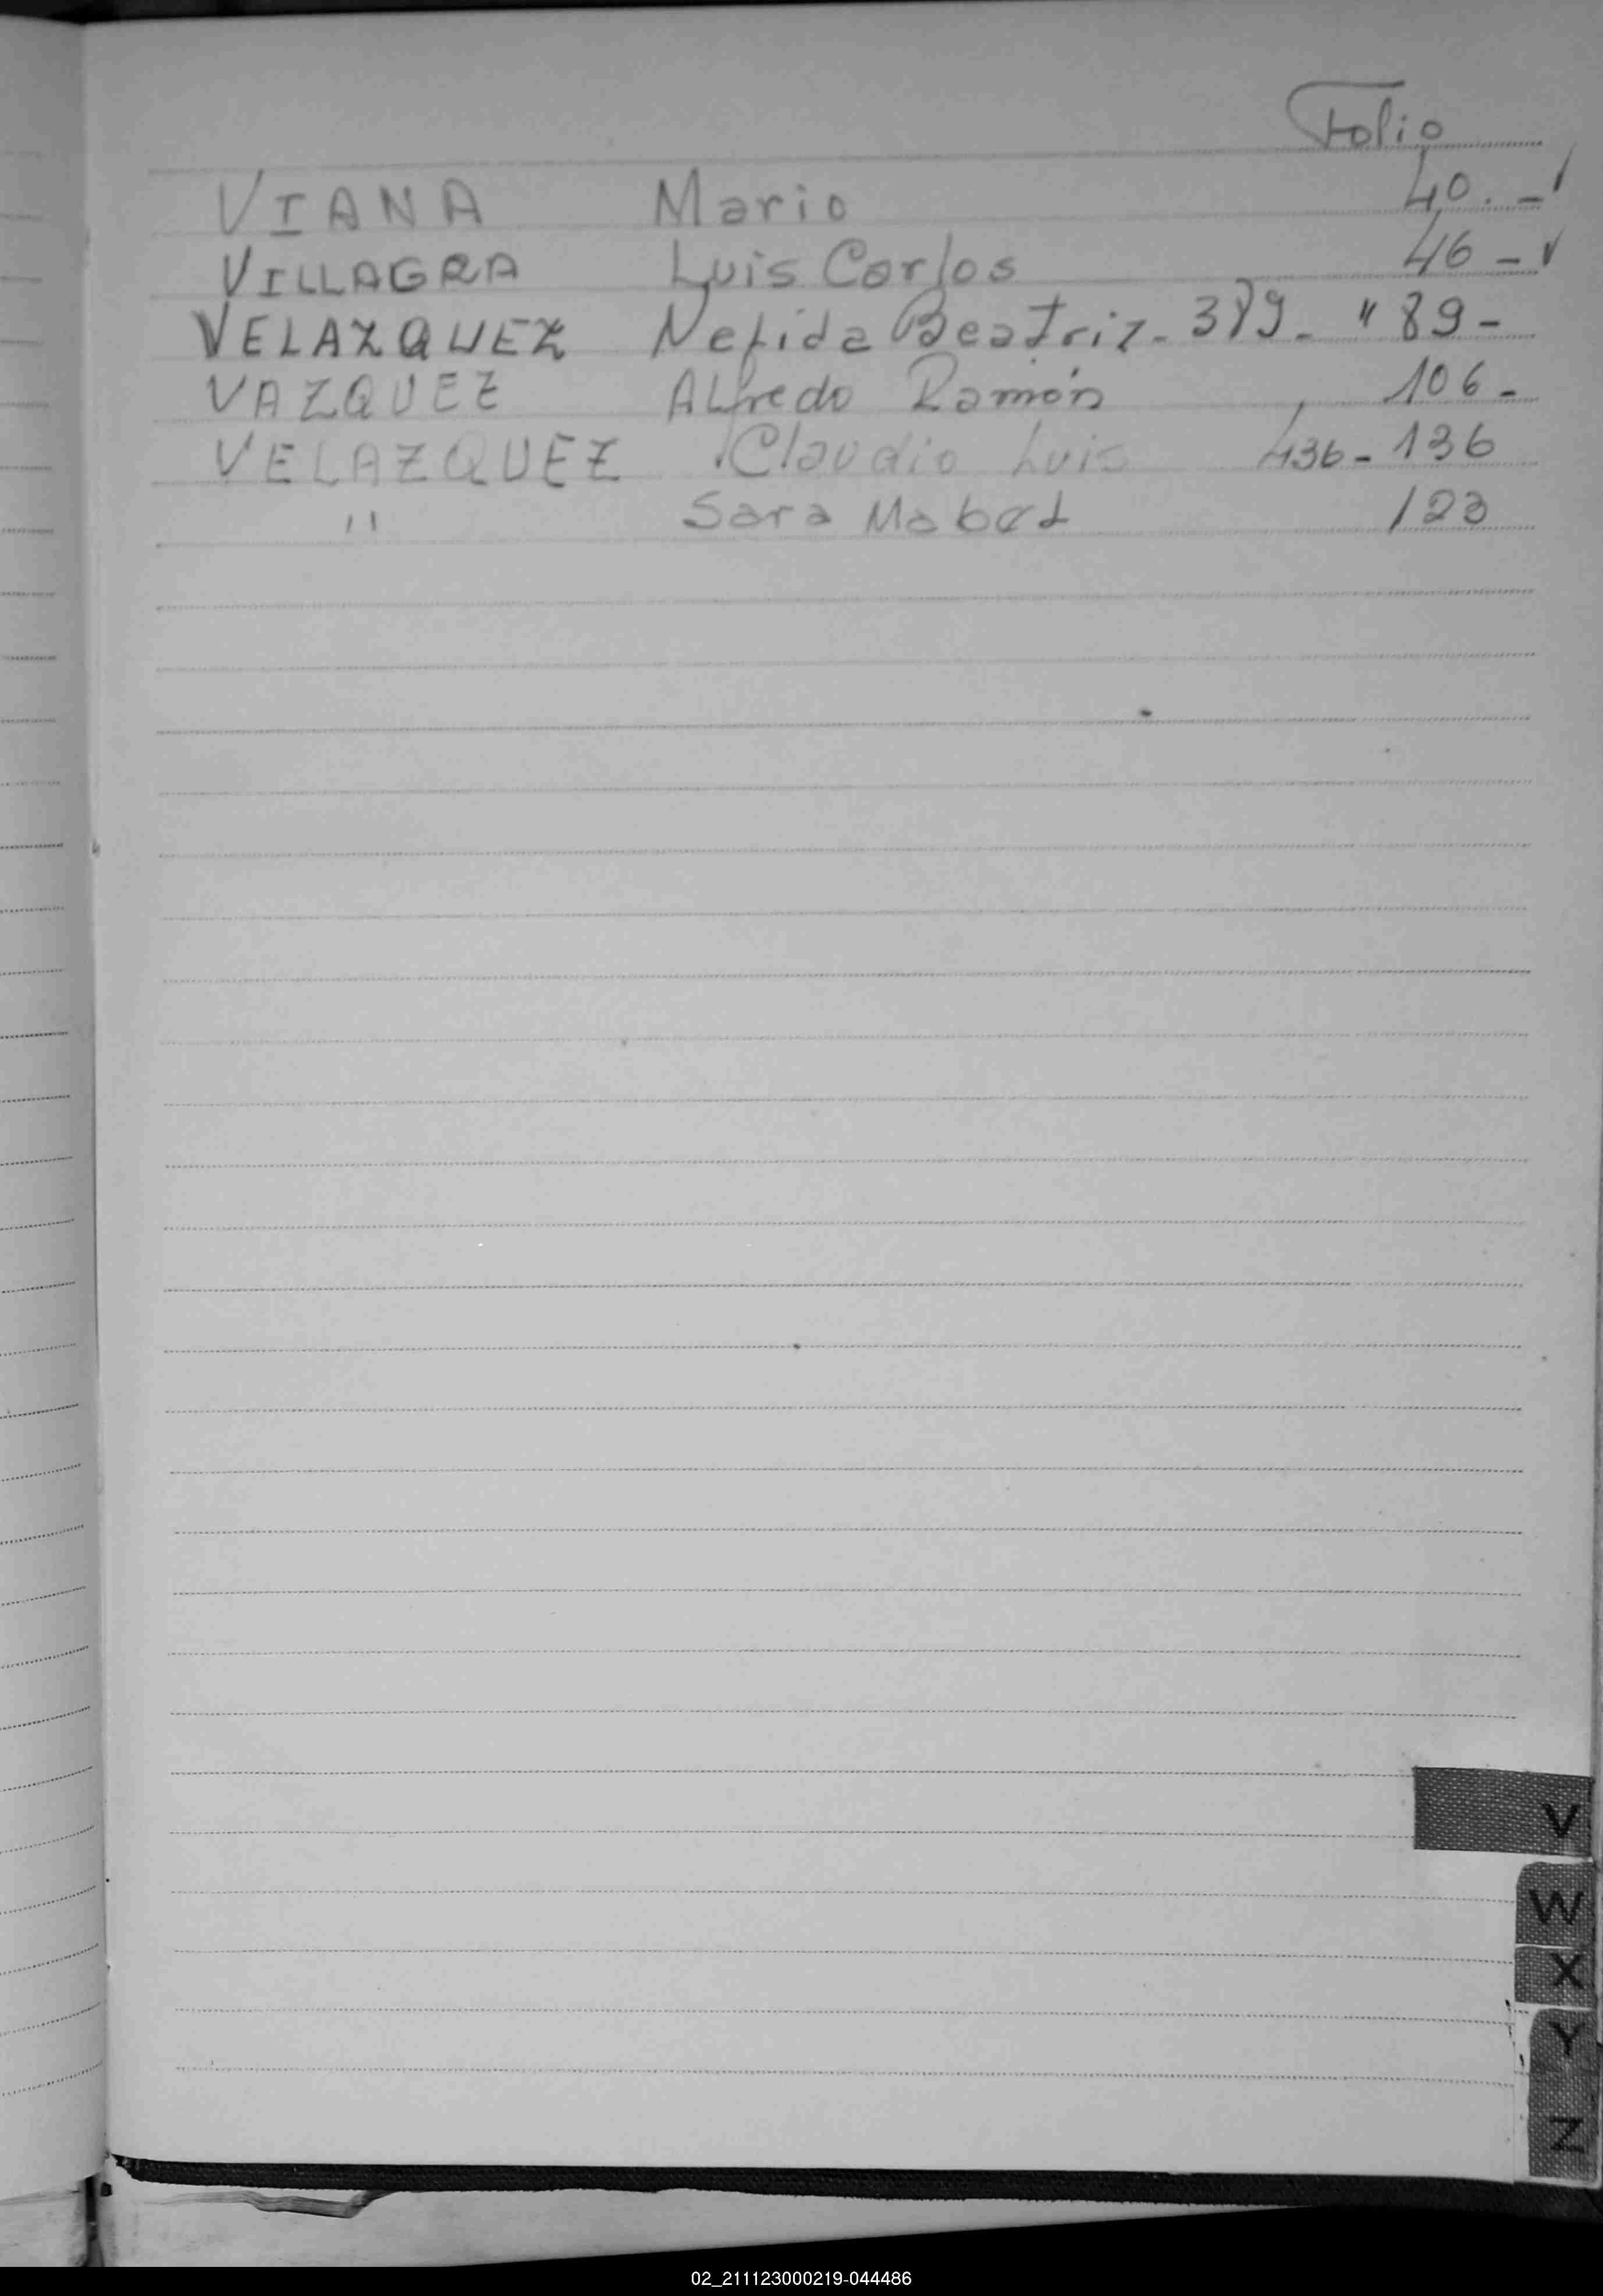 Folio
VIANA Mario 40.-
VILLAGRA Luis Carlos 46-
VELAZQUEZ Nelida Beatriz- 389- " 89-
VAZQUEZ Alfredo Ramón 106-
VELAZQUEZ Claudio Luis 436- 136
" Sara Mabel 123
V
W
X
Y
Z
02_211123000219-044486